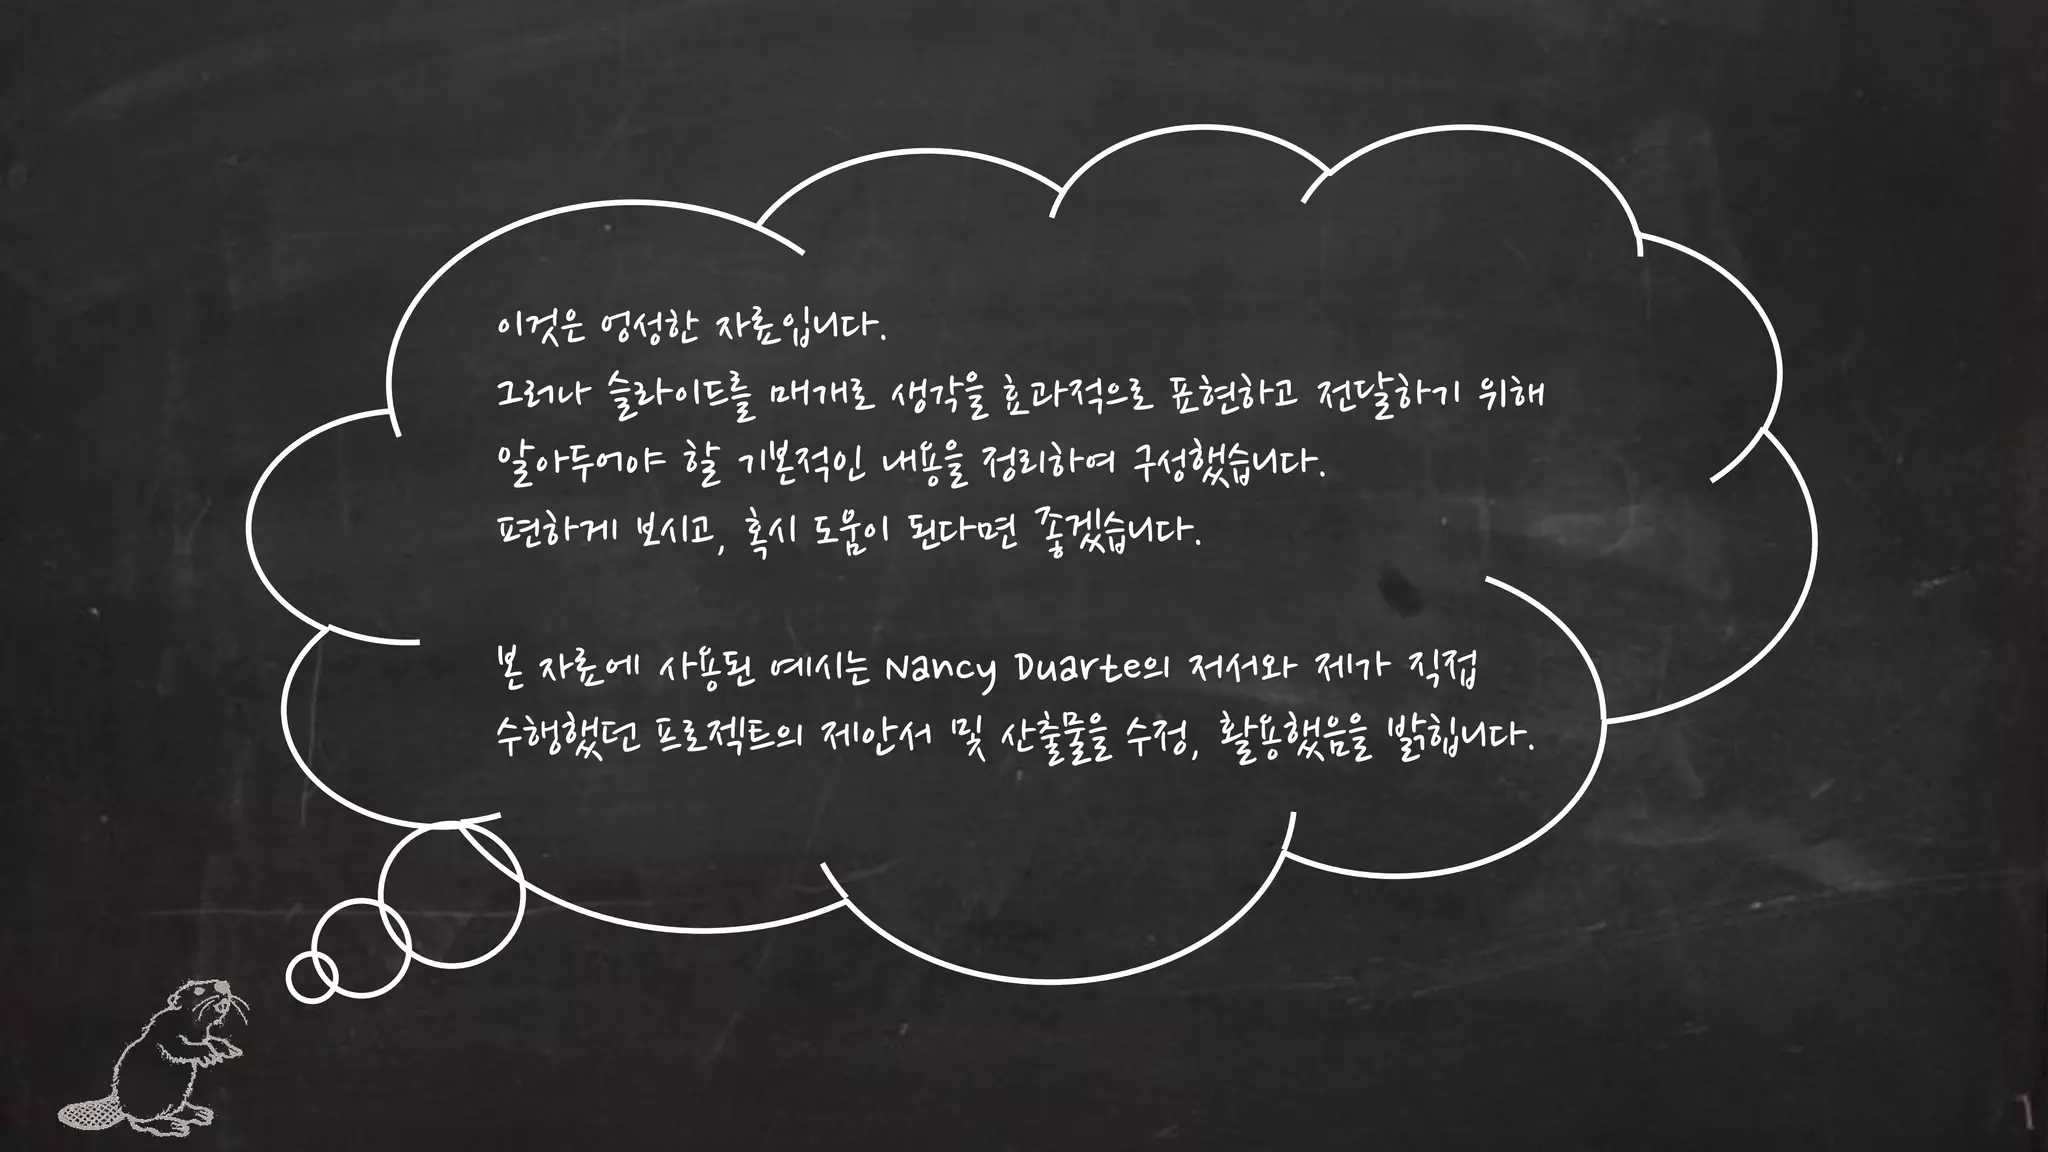 이것은 엉성한 자료입니다.
그러나 슬라이드를 매개로 생각을 효과적으로 표현하고 전달하기 위해
알아두어야 할 기본적인 내용을 정리하여 구성했습니다.
편하게 보시고, 혹시 도움이 된다면 좋겠습니다.
본 자료에 사용된 예시는 Nancy Duarte의 저서와 제가 직접
수행했던 프로젝트의 제안서 및 산출물을 수정, 활용했음을 밝힙니다.